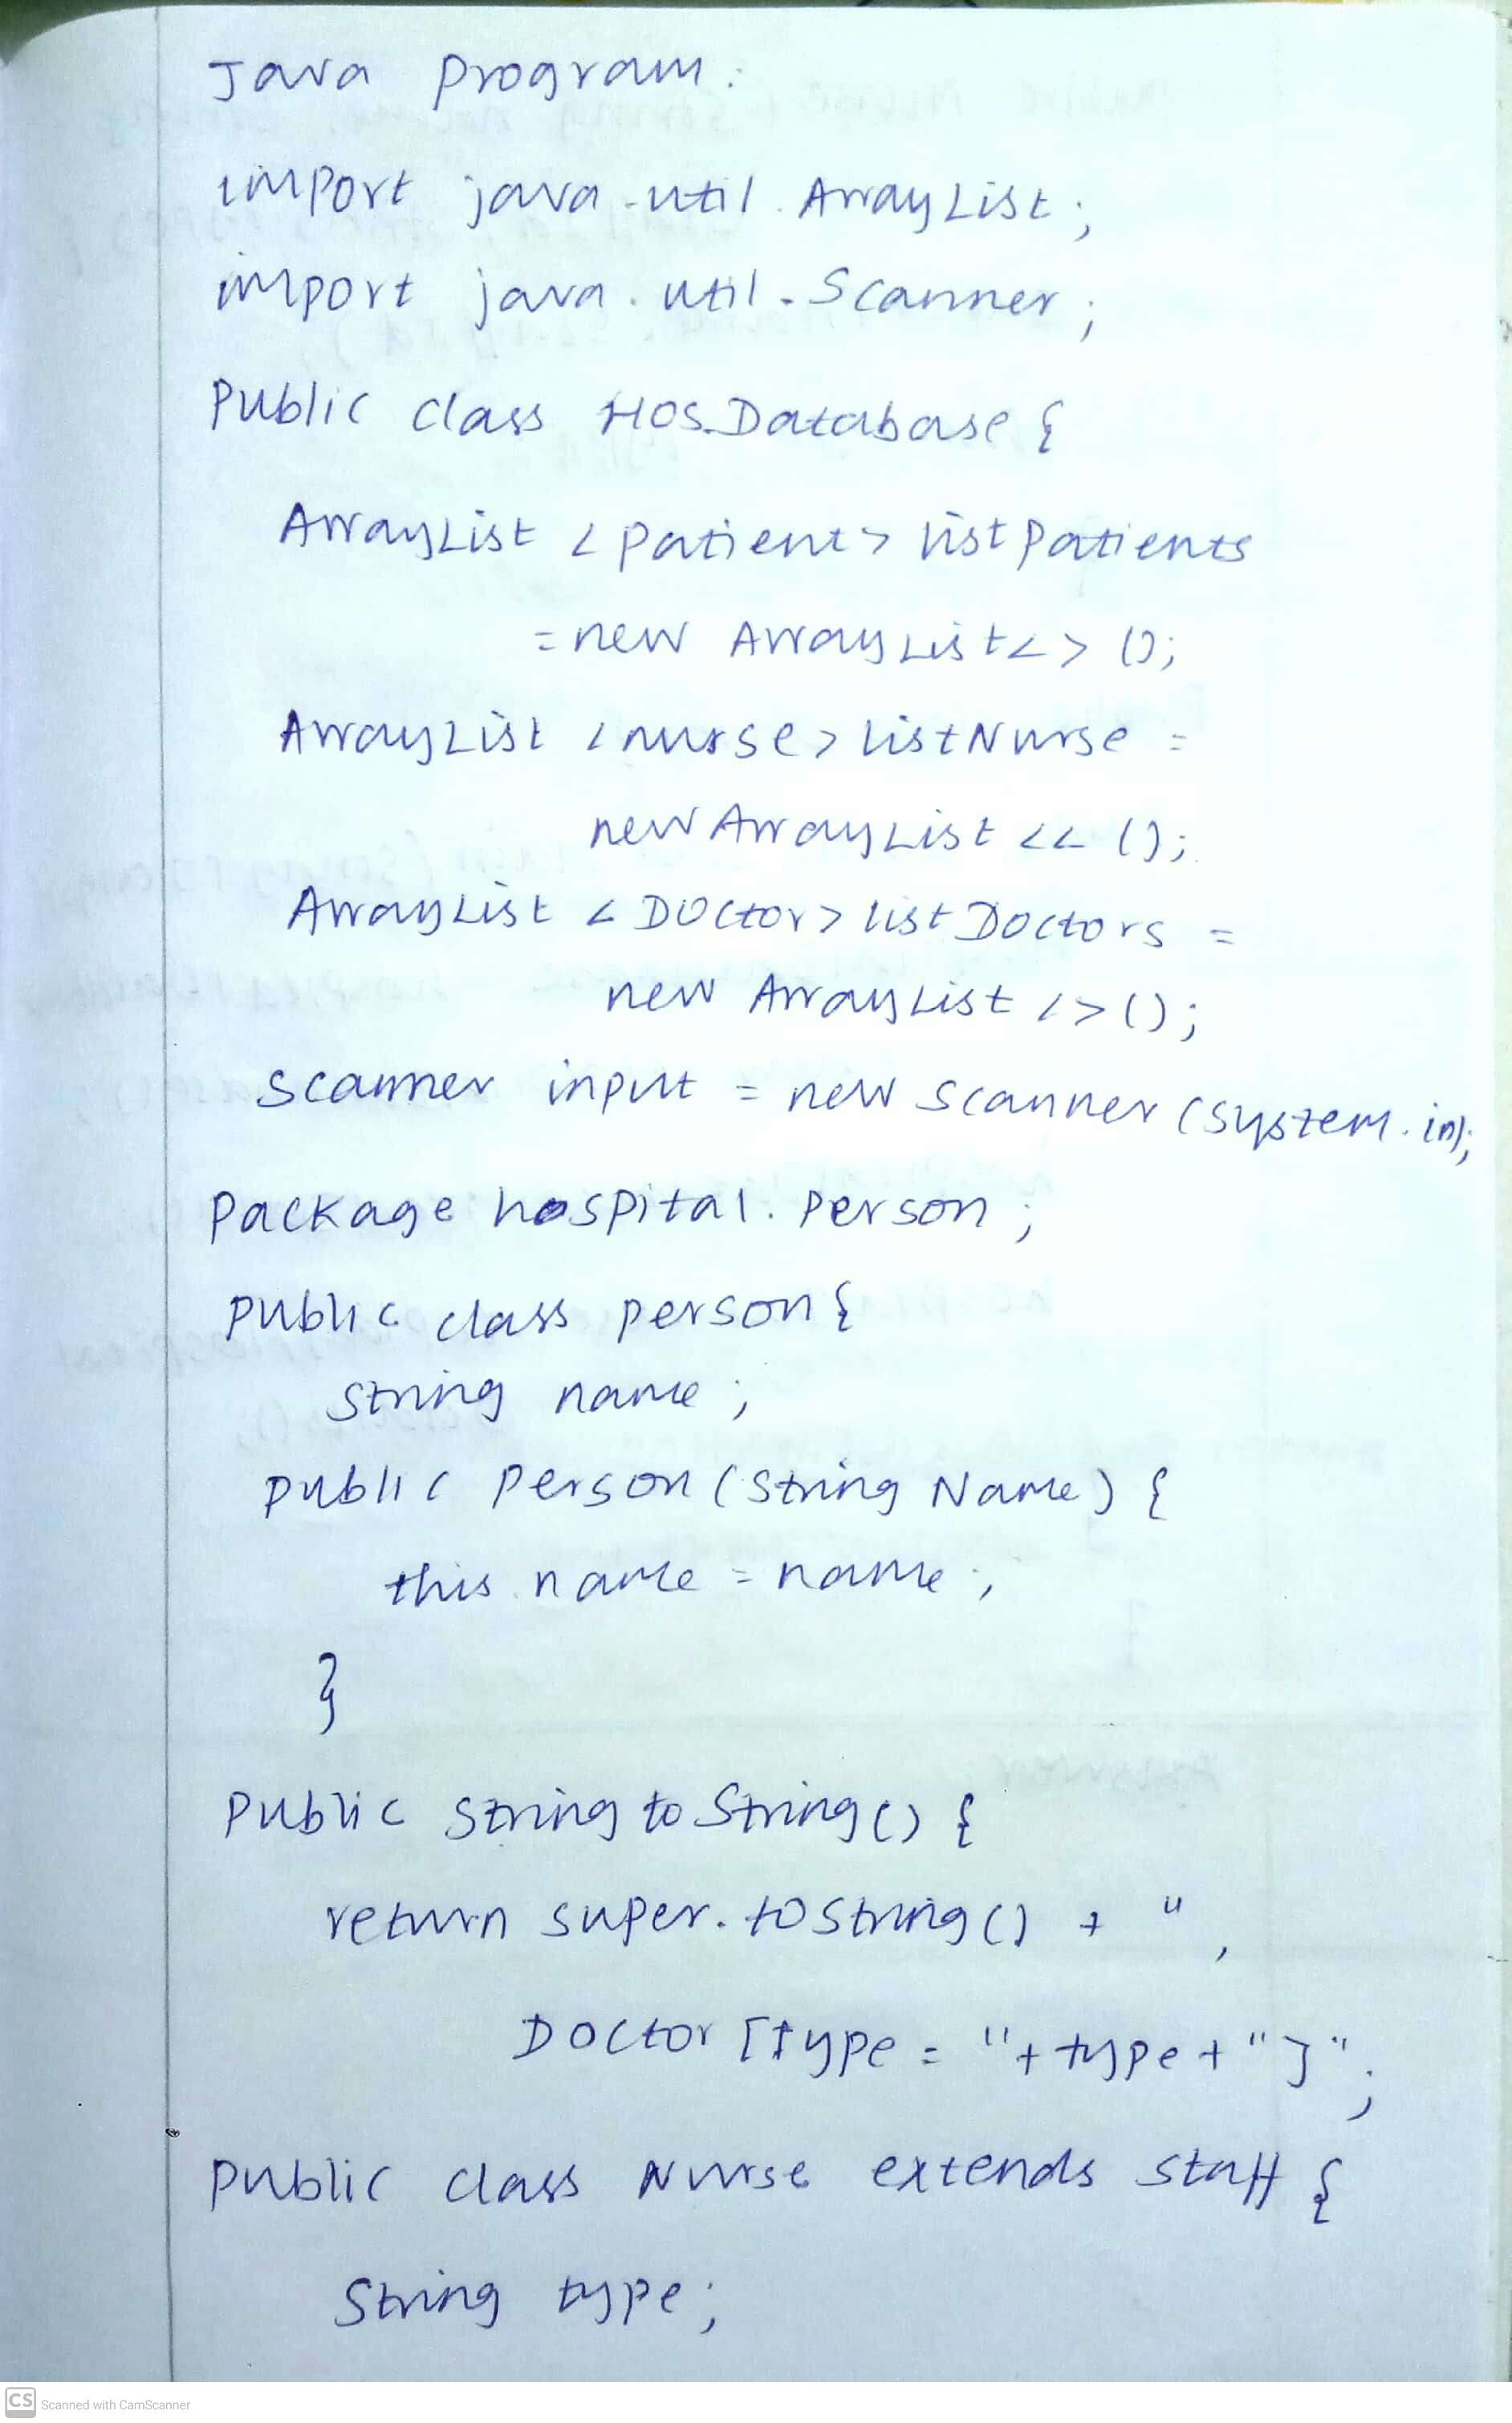 Java program:
import java.util.ArrayList;
import java.util.Scanner;
Public class Hos_Database {
ArrayList <patient> listPatients
= new ArrayList<> ();
ArrayList <nurse> listNurse =
new ArrayList << ();
ArrayList < Doctor> listDoctors =
new ArrayList <>();
Scanner input = new Scanner (System.in);
Package hospital. Person;
public class person {
String name;
public Person (String Name) {
this name = name;
}
Public String to String() {
return super. toString() + ",
Doctor [type = "+type+"]";
public class Nurse extends staff {
String type;
CS Scanned with CamScanner